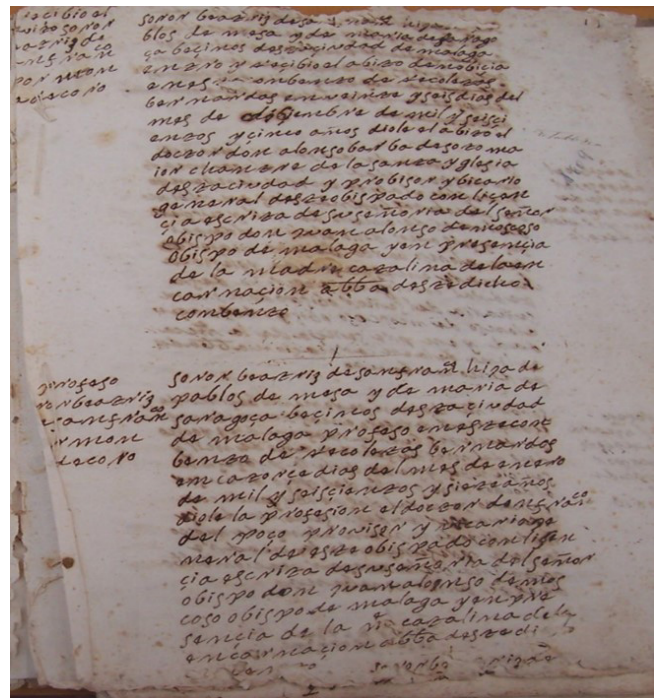 recibio el
abito soror
beatriz de
sanfran^co
por mon
de coro
soror beatriz de san fran^co hija de pa
blos de mesa y de maria de sarago
ça becinos desta ciudad de malaga
entro y recibio el abito de nobicia
en este conbento de recoletas
bernardas en veinte y seis dias del
mes de dizienbre de mil y seisci
entos y cinco años diole el abito el
doctor don alonso barba de sotoma
ior chantre de la santa yglesia
desta ciudad y probisor y bicario
general deste obispado con licen
cia escrita de su señoria del señor
obispo don juan alonso de moscoso
obispo de malaga y en presencia
de la madre catalina de la en
carnacion abba deste dicho
conbento
profeso
soror beatriz
de sanfran^co
por mon
de coro
soror beatriz de san fran^co hija de
pablos de mesa y de maria de
saragoça becinos desta ciudad
de malaga profeso en este con
bento de recoletas bernardas
em catorce dias del mes de enero
de mil y seiscientos y siete años
diole la profesion el doctor don fran^co
del poço provisor y vicario ge
neral de este obispado con licen
cia escrita de su señoria del señor
obispo don juan alonso de mos
coso obispo de malaga y en pre
sencia de la m^e catalina de la
encarnacion abba deste di